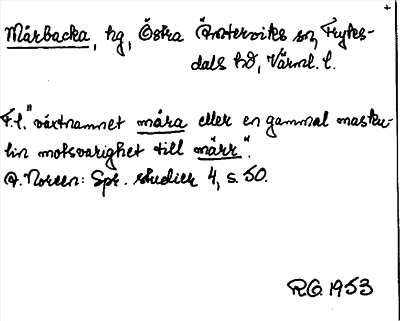 Mårbacka, hg, Östra Ämterviks sn, Fryks-
dals hd, Värml. l.
F.l. "växtnamnet måra eller en gammal masku-
lin motsvarighet till märr".
A. Noreen: Spr. studier 4, s. 50.
R.G. 1953